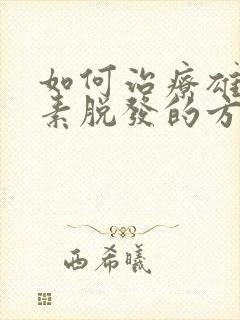 如何治療雄
素脫發的方
西希曦